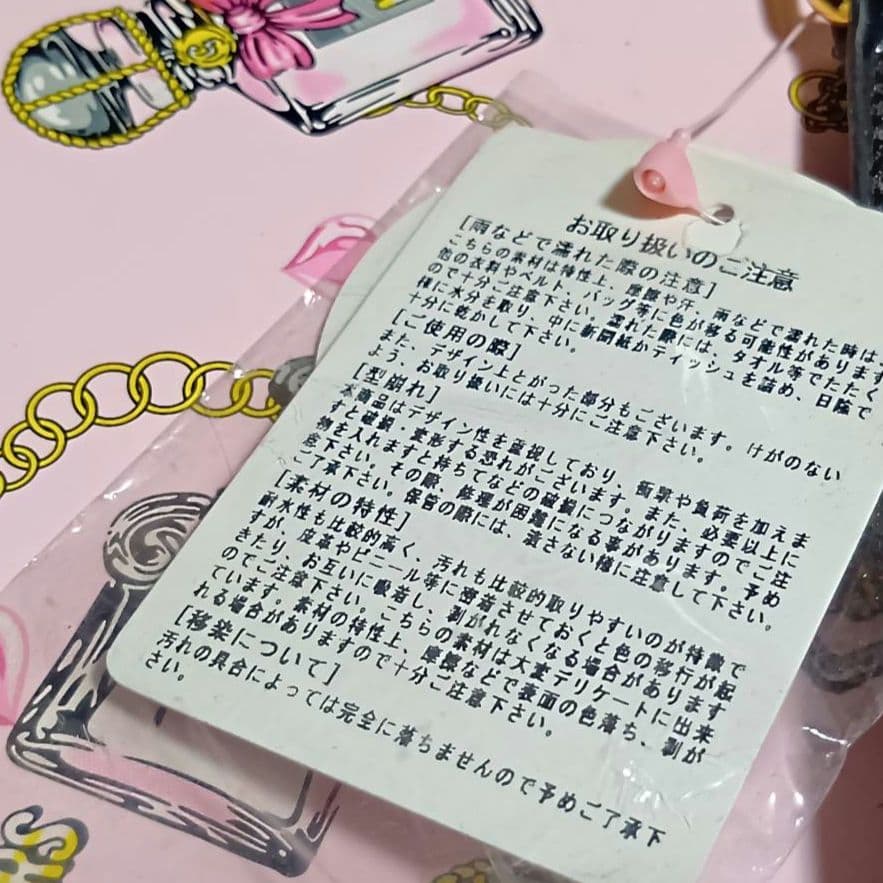 お取り扱いのご注意
[雨などで濡れた際の注意]
こちらの素材は特性上、摩擦や汗、雨などで濡れた時は
他の衣料やベルト、バッグ等に色が移る可能性があります
ので十分ご注意下さい。濡れた際には、タオル等でたたく
様に水分を取り、中に新聞紙かティッシュを詰め、日陰で
十分に乾かして下さい。
[ご使用の際]
また、デザイン上とがった部分もございます。けがのない
よう、お取り扱いには十分にご注意下さい。
[型崩れ]
本商品はデザイン性を重視しており、衝撃や負荷を加えま
すと破損、変形する恐れがございます。また、必要以上に
物を入れますと持ち手などの破損につながりますのでご注
意下さい。その際、修理が困難になる事があります。予め
ご了承下さい。保管の際には、潰さない様に注意して下さい。
[素材の特性]
耐水性も比較的高く、汚れも比較的取りやすいのが特徴で
すが、皮革やビニール等に密着させておくと色の移行が起
きたり、お互いに吸着し、剥がれなくなる場合があります
のでご注意下さい。こちらの素材は大変デリケートに出来
ています。素材の特性上、摩擦などで表面の色落ち、剥が
れる場合がありますので十分ご注意下さい。
[移染について]
汚れの具合によっては完全に落ちませんので予めご了承下
さい。